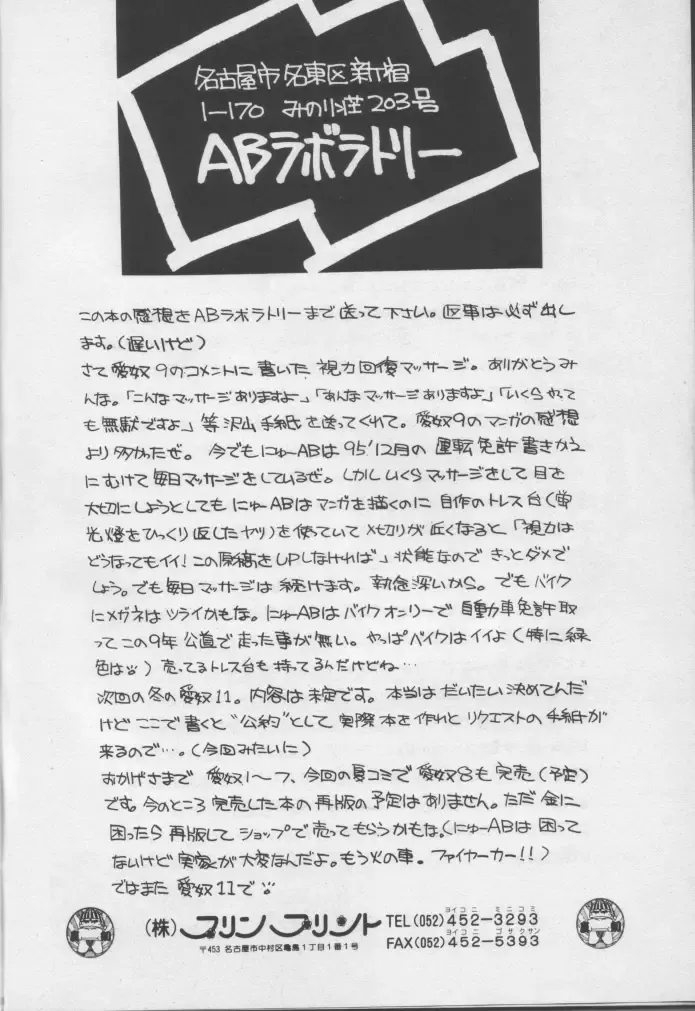 名古屋市名東区新宿
1-170 みのり荘203号
ABラボラトリー
この本の感想をABラボラトリーまで送って下さい。返事は必ず出し
ます。(遅いけど)
さて愛奴9のコメントに書いた視力回復マッサージ。ありがとうみ
んな。「こんなマッサージありますよ」「あんなマッサージありますよ」「いくらやって
も無駄ですよ」等沢山手紙を送ってくれて。愛奴9のマンガの感想
より多かったぜ。今でもにゅーABは95'12月の運転免許書きかえ
にむけて毎日マッサージをしているぜ。しかしいくらマッサージをして目を
大切にしようとしてもにゅーABはマンガを描くのに自作のトレス台(蛍
光燈をひっくり返したヤツ)を使っていて〆切りが近くなると「視力は
どうなってもイイ!この原稿をUPしなければ」状態なのできっとダメで
しょう。でも毎日マッサージは続けます。執念深いから。でもバイク
にメガネはツライかもな。にゅーABはバイクオンリーで自動車免許取
ってこの9年公道で走った事が無い。やっぱバイクはイイよ(特に緑
色は)売ってるトレス台も持ってるんだけどね…
次回の冬の愛奴11。内容は未定です。本当はだいたい決めてんだ
けどここで書くと"公約"として実際本を作れとリクエストの手紙が
来るので…。(今回みたいに)
おかげさまで愛奴1〜7、今回の夏コミで愛奴8も完売(予定)
です。今のところ完売した本の再版の予定はありません。ただ金に
困ったら再版してショップで売ってもらうかもな。(にゅーABは困って
ないけど実家が大変なんだよ。もう火の車。ファイヤーカー!!)
ではまた愛奴11で
(株)プリンプリント
〒453 名古屋市中村区亀島1丁目1番1号
ヨイコニ ミニコミ
TEL(052)452-3293
ヨイコニ ゴサクサン
FAX(052)452-5393